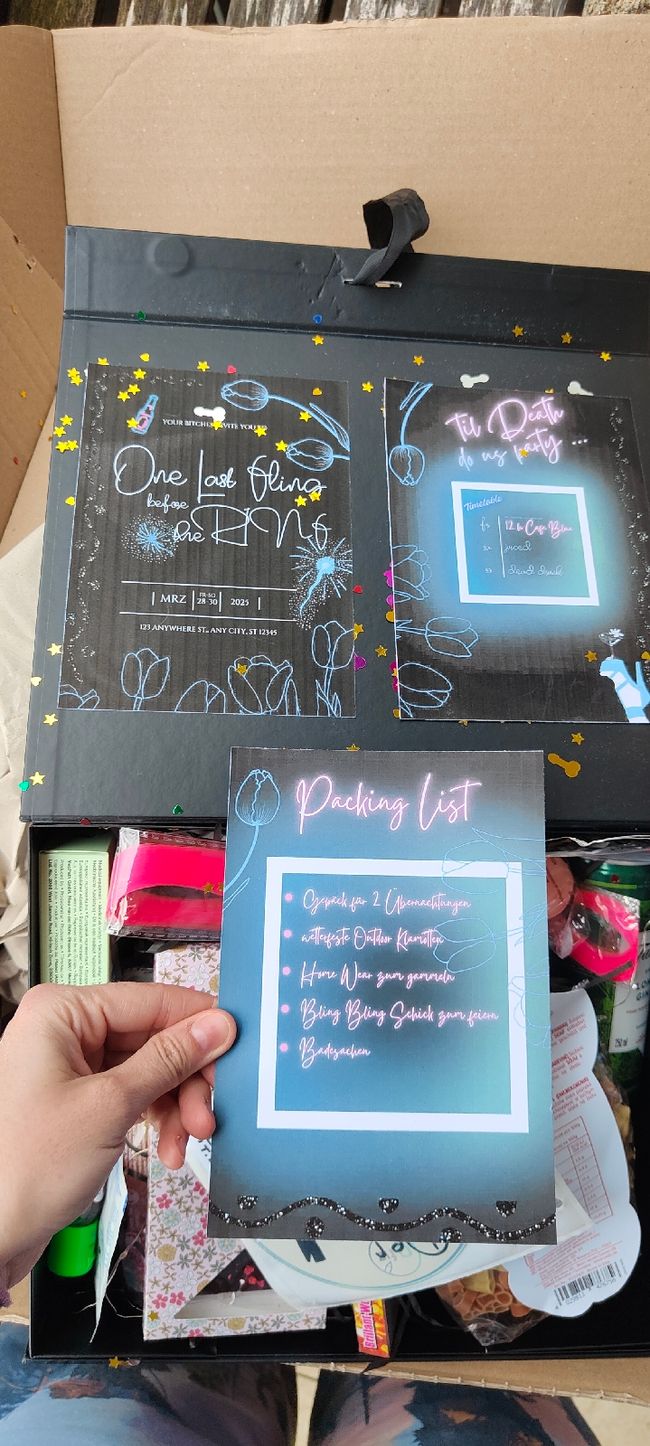 YOUR BITCHES
One Last Fling
before
the RING
MRZ
FR-SO
28-30
2025
123 ANYWHERE ST., ANY CITY, ST 12345
'til Death
do us party ...
Timetable
fr
12 h Cafe Blau
sa
so
Packing List
Gepäck für 2 Übernachtungen
wetterfeste Outdoor Klamotten
Home Wear zum gammeln
Bling Bling Schick zum feiern
Badesachen